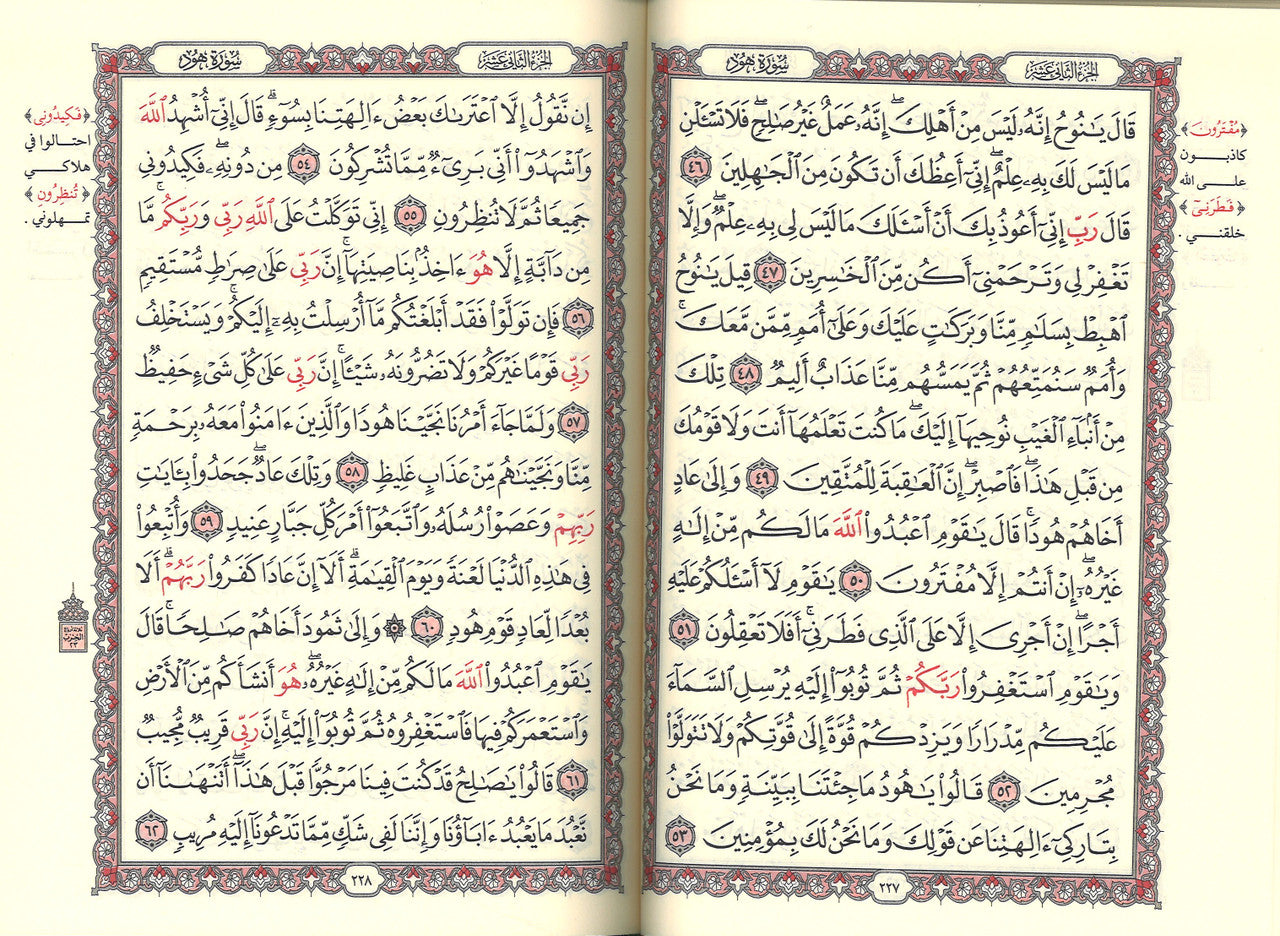 سُورَةُ هُودٍ
الجُزْءُ الثَّانِي عَشَرَ
قَالَ يَٰنُوحُ إِنَّهُۥ لَيْسَ مِنْ أَهْلِكَ ۖ إِنَّهُۥ عَمَلٌ غَيْرُ صَٰلِحٍ ۖ فَلَا تَسْـَٔلْنِ
مَا لَيْسَ لَكَ بِهِۦ عِلْمٌ ۖ إِنِّىٓ أَعِظُكَ أَن تَكُونَ مِنَ ٱلْجَٰهِلِينَ ٤٦
قَالَ رَبِّ إِنِّىٓ أَعُوذُ بِكَ أَنْ أَسْـَٔلَكَ مَا لَيْسَ لِى بِهِۦ عِلْمٌ ۖ وَإِلَّا
تَغْفِرْ لِى وَتَرْحَمْنِىٓ أَكُن مِّنَ ٱلْخَٰسِرِينَ ٤٧ قِيلَ يَٰنُوحُ
ٱهْبِطْ بِسَلَٰمٍ مِّنَّا وَبَرَكَٰتٍ عَلَيْكَ وَعَلَىٰٓ أُمَمٍ مِّمَّن مَّعَكَ ۚ
وَأُمَمٌ سَنُمَتِّعُهُمْ ثُمَّ يَمَسُّهُم مِّنَّا عَذَابٌ أَلِيمٌ ٤٨ تِلْكَ
مِنْ أَنۢبَآءِ ٱلْغَيْبِ نُوحِيهَآ إِلَيْكَ ۖ مَا كُنتَ تَعْلَمُهَآ أَنتَ وَلَا قَوْمُكَ
مِن قَبْلِ هَٰذَا ۖ فَٱصْبِرْ ۖ إِنَّ ٱلْعَٰقِبَةَ لِلْمُتَّقِينَ ٤٩ وَإِلَىٰ عَادٍ
أَخَاهُمْ هُودًا ۚ قَالَ يَٰقَوْمِ ٱعْبُدُوا۟ ٱللَّهَ مَا لَكُم مِّنْ إِلَٰهٍ
غَيْرُهُۥٓ ۖ إِنْ أَنتُمْ إِلَّا مُفْتَرُونَ ٥٠ يَٰقَوْمِ لَآ أَسْـَٔلُكُمْ عَلَيْهِ
أَجْرًا ۖ إِنْ أَجْرِىَ إِلَّا عَلَى ٱلَّذِى فَطَرَنِىٓ ۚ أَفَلَا تَعْقِلُونَ ٥١
وَيَٰقَوْمِ ٱسْتَغْفِرُوا۟ رَبَّكُمْ ثُمَّ تُوبُوٓا۟ إِلَيْهِ يُرْسِلِ ٱلسَّمَآءَ
عَلَيْكُم مِّدْرَارًا وَيَزِدْكُمْ قُوَّةً إِلَىٰ قُوَّتِكُمْ وَلَا تَتَوَلَّوْا۟
مُجْرِمِينَ ٥٢ قَالُوا۟ يَٰهُودُ مَا جِئْتَنَا بِبَيِّنَةٍ وَمَا نَحْنُ
بِتَارِكِىٓ ءَالِهَتِنَا عَن قَوْلِكَ وَمَا نَحْنُ لَكَ بِمُؤْمِنِينَ ٥٣
﴿مُفْتَرُونَ﴾
كاذبون
على الله
﴿فَطَرَنِىٓ﴾
خلقني .
٢٢٧
سُورَةُ هُودٍ
الجُزْءُ الثَّانِي عَشَرَ
إِن نَّقُولُ إِلَّا ٱعْتَرَىٰكَ بَعْضُ ءَالِهَتِنَا بِسُوٓءٍ ۗ قَالَ إِنِّىٓ أُشْهِدُ ٱللَّهَ
وَٱشْهَدُوٓا۟ أَنِّى بَرِىٓءٌ مِّمَّا تُشْرِكُونَ ٥٤ مِن دُونِهِۦ ۖ فَكِيدُونِى
جَمِيعًا ثُمَّ لَا تُنظِرُونِ ٥٥ إِنِّى تَوَكَّلْتُ عَلَى ٱللَّهِ رَبِّى وَرَبِّكُم ۚ مَّا
مِن دَآبَّةٍ إِلَّا هُوَ ءَاخِذٌۢ بِنَاصِيَتِهَآ ۚ إِنَّ رَبِّى عَلَىٰ صِرَٰطٍ مُّسْتَقِيمٍ
٥٦ فَإِن تَوَلَّوْا۟ فَقَدْ أَبْلَغْتُكُم مَّآ أُرْسِلْتُ بِهِۦٓ إِلَيْكُمْ ۚ وَيَسْتَخْلِفُ
رَبِّى قَوْمًا غَيْرَكُمْ وَلَا تَضُرُّونَهُۥ شَيْـًٔا ۚ إِنَّ رَبِّى عَلَىٰ كُلِّ شَىْءٍ حَفِيظٌ
٥٧ وَلَمَّا جَآءَ أَمْرُنَا نَجَّيْنَا هُودًا وَٱلَّذِينَ ءَامَنُوا۟ مَعَهُۥ بِرَحْمَةٍ
مِّنَّا وَنَجَّيْنَٰهُم مِّنْ عَذَابٍ غَلِيظٍ ٥٨ وَتِلْكَ عَادٌ ۖ جَحَدُوا۟ بِـَٔايَٰتِ
رَبِّهِمْ وَعَصَوْا۟ رُسُلَهُۥ وَٱتَّبَعُوٓا۟ أَمْرَ كُلِّ جَبَّارٍ عَنِيدٍ ٥٩ وَأُتْبِعُوا۟
فِى هَٰذِهِ ٱلدُّنْيَا لَعْنَةً وَيَوْمَ ٱلْقِيَٰمَةِ ۗ أَلَآ إِنَّ عَادًا كَفَرُوا۟ رَبَّهُمْ ۗ أَلَا
بُعْدًا لِّعَادٍ قَوْمِ هُودٍ ٦٠ ۞ وَإِلَىٰ ثَمُودَ أَخَاهُمْ صَٰلِحًا ۚ قَالَ
يَٰقَوْمِ ٱعْبُدُوا۟ ٱللَّهَ مَا لَكُم مِّنْ إِلَٰهٍ غَيْرُهُۥ ۖ هُوَ أَنشَأَكُم مِّنَ ٱلْأَرْضِ
وَٱسْتَعْمَرَكُمْ فِيهَا فَٱسْتَغْفِرُوهُ ثُمَّ تُوبُوٓا۟ إِلَيْهِ ۚ إِنَّ رَبِّى قَرِيبٌ مُّجِيبٌ
٦١ قَالُوا۟ يَٰصَٰلِحُ قَدْ كُنتَ فِينَا مَرْجُوًّا قَبْلَ هَٰذَآ ۖ أَتَنْهَىٰنَآ أَن
نَّعْبُدَ مَا يَعْبُدُ ءَابَآؤُنَا وَإِنَّنَا لَفِى شَكٍّ مِّمَّا تَدْعُونَآ إِلَيْهِ مُرِيبٍ ٦٢
﴿فَكِيدُونِى﴾
احتالوا في
هلاكي
﴿تُنظِرُونِ﴾
تمهلوني .
الحزب
٢٣
٢٢٨